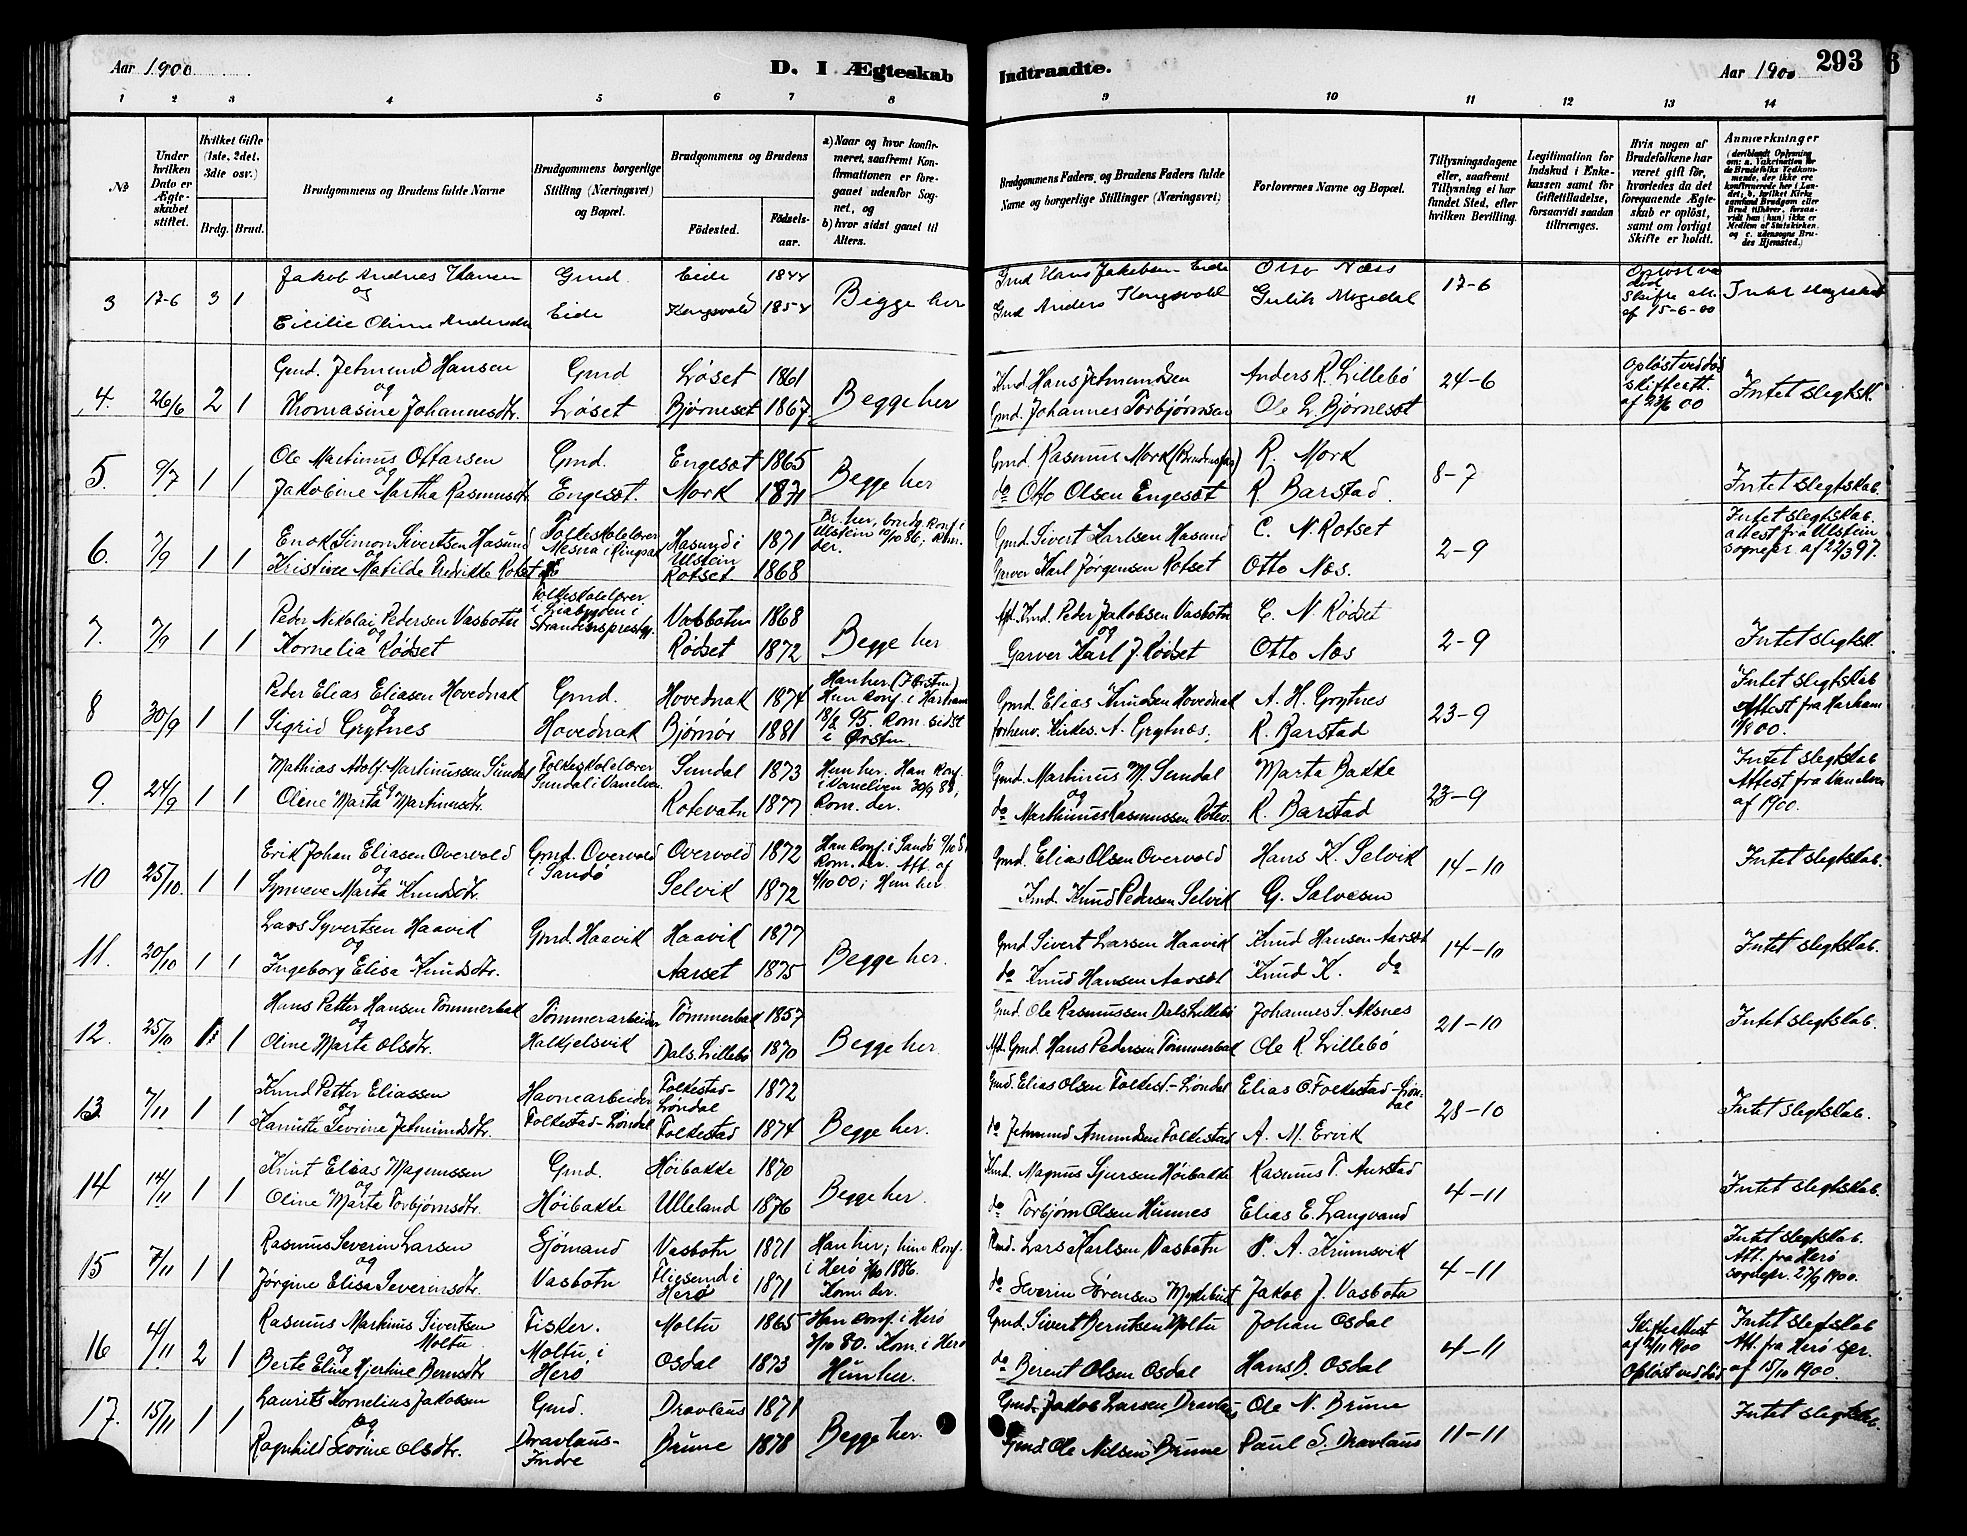 Aar 1900
D. I Ægteskab
Indtraadte.
Aar 1900
293
1 2 3 4 5 6 7 8 9 10 11 12 13 14
No
Under hvilken Dato er Ægteskabet stiftet.
Hvilket Gifte (1ste, 2det, 3die osv.)
Brdg. Brud.
Brudgommens og Brudens fulde Navne
Brudgommens borgerlige Stilling (Næringsvei) og Bopæl.
Brudgommens og Brudens
Födested.
Födselsaar.
a) Naar og hvor konfirmeret, saafremt Konfirmationen er foregaaet udenfor Sognet, og
b) hvor sidst gaaet til Alters.
Brudgommens Faders, og Brudens Faders fulde Navne og borgerlige Stillinger (Næringsvei)
Forlovernes Navne og Bopæl.
Tillysningsdagene eller, saafremt Tillysning ei har fundet Sted, efter hvilken Bevilling.
Legitimation for Indskud i Enkekassen samt for Giftetilladelse, forsaavidt saadan tiltrænges.
Hvis nogen af Brudefolkene har været gift før, hvorledes da det foregaaende Ægteskab er opløst, samt om lovligt Skifte er holdt.
Anmærkninger
3 17-6 3 1 Jakob Andreas Hansen Gmd. Eide 1844 Begge her Gmd Hans Jakobsen Eide Otto Næss 17-6
og
Oline Andersdtr Eide Kongsvold 1854 Gmd Anders Kongsvold Gulik Mogedal
Skifte att. af 15-6-00
4. 26/6 2 1 Gmd. Jetmund Hansen Gmd Løset 1861 Begge her Kmd Hans Jetmundsen Anders R. Lillebö 24-6 Opløst ved død skifteatt. af 23/6 00 Intet slegtsk.
og
Thomasine Johannesdtr. Løset Bjørneset 1867. Gmd. Johannes Torbjørnsen Ole L. Bjørneset
5. 9/7 1 1 Ole Martinus Ottarsen Gmd. Engeset 1865 Begge her Gmd. Rasmus Mork (Brudens far) R. Mork 8-7 Intet slegtskab.
og
Jakobine Martha Rasmusdtr. Engeset. Mork 1871 do Otto Olsen Engeset R. Barstad.
6. 7/9 1 1 Enok Simon Sivertsen Hasund Folkeskolelærer Hasund i Ulstein 1871 Gmd. Sivert Karlsen Hasund C. N. Rotset 2-9 Intet slegtskab. attest fra Ulstein sognepr. af 22/3 97.
og
Kristine Matilde Fredrikke Rotset Rotset 1868 Garver Karl Jørgensen Rotset Otto Næs.
7. 7/9 1 1 Peder Nikolai Pedersen Vasbotn Folkeskolelærer i Liabygden i Vasbotn 1868 Begge her Aft. Kmd. Peder Jakobsen Vasbotn C. N. Rødset 2-9 Intet slegtsk.
og
Kornelia Rødset Rødset 1872 Garver Karl J. Rødset Otto Næs
8 30/9 1 1 Peder Elias Eliasen Hovednak Gmd. Hovednak 1874 Han her (Ørsten) Hun Konf. i Harham 18/8 95. Kom. sidst i Ørsten. Gmd. Elias Knudsen Hovednak A. H. Grytnes 23-9 Intet slegtskab Attest fra Harham
og
Sigrid Grytnes Hovednak Bjørnør 1881 forhenv. Kirkes. A. Grytnæs. R. Barstad
9. 24/9 1 1 Mathias Adolf Martinussen Sundal Folkeskolelærer Sundal i Vanelven. Sundal 1873 Hun her. Han Konf. i Vanelven 30/9 88, Kom. der. Gmd. Martinus M. Sundal Marta Bakke 23-9 Intet slegtskab Attest fra Vanelven af 1900.
og
Oline Marta Martinusdtr. Rotevatn 1877 do Marthinus Rasmussen Rotev. R. Barstad
10 25/10. 1 1 Erik Johan Eliasen Overvold Gmd. Overvold i Sandö Overvold 1872 Elias Olsen Overvold Hans K. Selvik 14-10 Intet slegtskab.
og
Synneve Marta Knudsdtr. Selvik 1872 Kmd. Knud Pedersen Selvik G. Salvesen
11. 20/10 1 1 Lars Syvertsen Haavik Gmd. Haavik Haavik 1877 Begge her. Gmd Sivert Larsen Haavik Knud Hansen Aarset 14-10 Intet slegtskab.
og
Ingeborg Elisa Knudsdtr. Aarset 1875 do Knud Hansen Aarset Knud K. do
12. 25/10 1 1 Hans Petter Hansen Tömmerbak Tömmerarbeider Tömmerbak 1857 Begge her. Gmd. Ole Rasmussen Dals Lillebö Johannes S. Aksnes 21-10 Intet slegtskab.
og
Oline Marta Olsdtr. Halkjelsvik Dals. Lillebö 1870 Aft. Gmd. Hans Pedersen Tömmerbak Ole R. Lillebö
13 7/11 1 1 Knud Petter Eliassen Havnearbeider Folkestad-Löndal 1872 Begge her. Gmd. Elias Olsen Folkest.-Löndal Elias O. Folkestad-Löndal 28-10 Intet slegtskab.
og
Sevrine Jetmundsdtr. Folkestad-Löndal Folkestad 1874 do Jetmund Amundsen Folkestad A. M. Ervik
14 14/11 1 1 Knut Elias Magnussen Gmd. Höibakke 1870 Begge her. Kmd. Magnus Sjursen Höibakke Rasmus T. Aurstad 4-11 Intet slegtskab.
og
Oline Marta Torbjørnsdtr. Höibakke Ulleland 1876 do Torbjørn Olsen Hunnes Elias E. Langvand
15 7/11 1 1 Rasmus Severin Larsen Sjömand Vasbotn 1871 Han her; hun Konf. i Herö 3/10 1886. Kom. der. Kmd. Lars Karlsen Vasbotn P. A. Krumsvik 4-11 Intet slegtskab. Att. fra Herö sognepr. 27/9 1900.
og
Jørgine Elise Severinsdtr. Vasbotn Flusund i Herö 1871 do Severin Sörensen Myklebust Jakob J. Vasbotn
16 4/11 2 1 Rasmus Martinus Sivertsen Moltu Fisker. Moltu 1865 Han Konf. i Herö 3/10 80. Kom. i Herö Hun her. Gmd. Sivert Berntsen Moltu Johan Osdal 4-11 Skifteattest af 2/11 1900 Opløst ved död Intet slegtskab Att. fra Herö spr. af 15/10 1900.
og
Berte Eline Hjertine Berntsdtr. Moltu i Herö Osdal 1873 do Berent Olsen Osdal Hans B. Osdal
17. 15/11 1 1 Laurits Kornelius Jakobsen Gmd. Dravlaus 1871 Begge her. Gmd. Jakob Larsen Dravlaus Ole N. Brune 11-11 Intet slegtskab.
og
Ragnhild Sevrine Olsdtr. Dravlaus-Indre Brune 1878 Gmd. Ole Nilsen Brune Paul S. Dravlaus